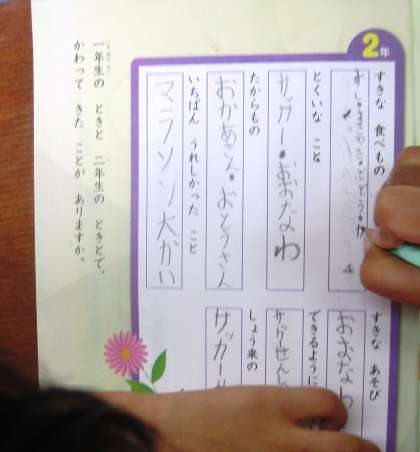 2年
すきな 食べもの
とくいな こと
サッカー・おおなわ
たからもの
おかあさん・おとうさん
いちばん うれしかった こと
マラソン大かい
すきな あそび
おおなわ
できるように
しょう来の
サッカー
一年生の ときと 二年生の ときとで、
かわって きた ことが ありますか。